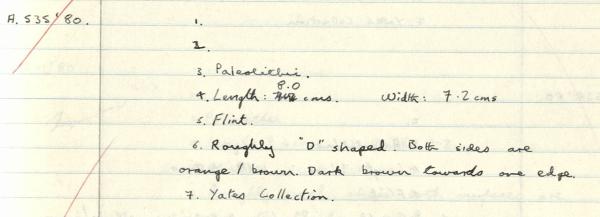 A. 535'80.
1.
2.
3. Paleolithic.
4. Length: 8.0 cms. Width: 7.2 cms
5. Flint.
6. Roughly "D" shaped. Both sides are
orange / brown. Dark brown towards one edge.
7. Yates Collection.